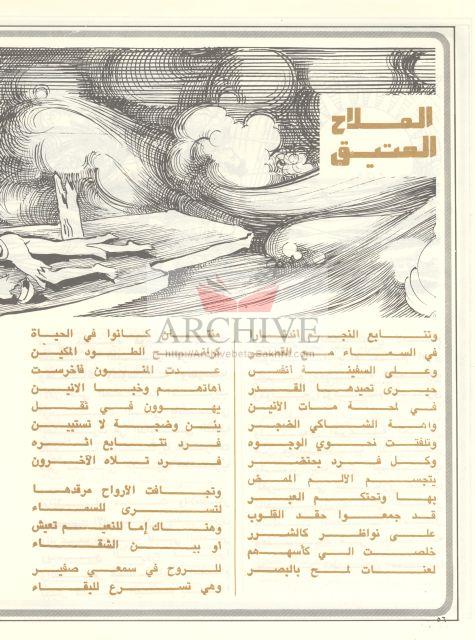 الملاح
العتيق
وتتابع النجـ
في السمـاء مـ القمـر
وعلى السفينة أنفس
حيرى تصيدها القدر
في لمحة مات الأنين
واهة الشاكي الضجر
وتلفتت نحوي الوجوه
وكل فرد يحتضر
يتجسم الألم الممض
بها وتحتكم العبر
قد جمعوا حقد القلوب
على نواظر كالشرر
خلصت الي كأسهم
لعنات لمح بالبصر
كانوا في الحياة
الطود المكين
عدت المنون فأخرست
آهاتهم وخبا الانين
يهوون في ثقل
يئن وضجة لا تستبين
فرد تتابع اثره
فرد تلاه الآخرون
وتجافت الأرواح مرقدها
لتسرى للسماء
وهناك إما للنعيم تعيش
او بين الشقاء
للروح في سمعي صفير
وهي تسرع للبقاء
ARCHIVE
http://Archivebeta.Sakhrit.com
٥٦